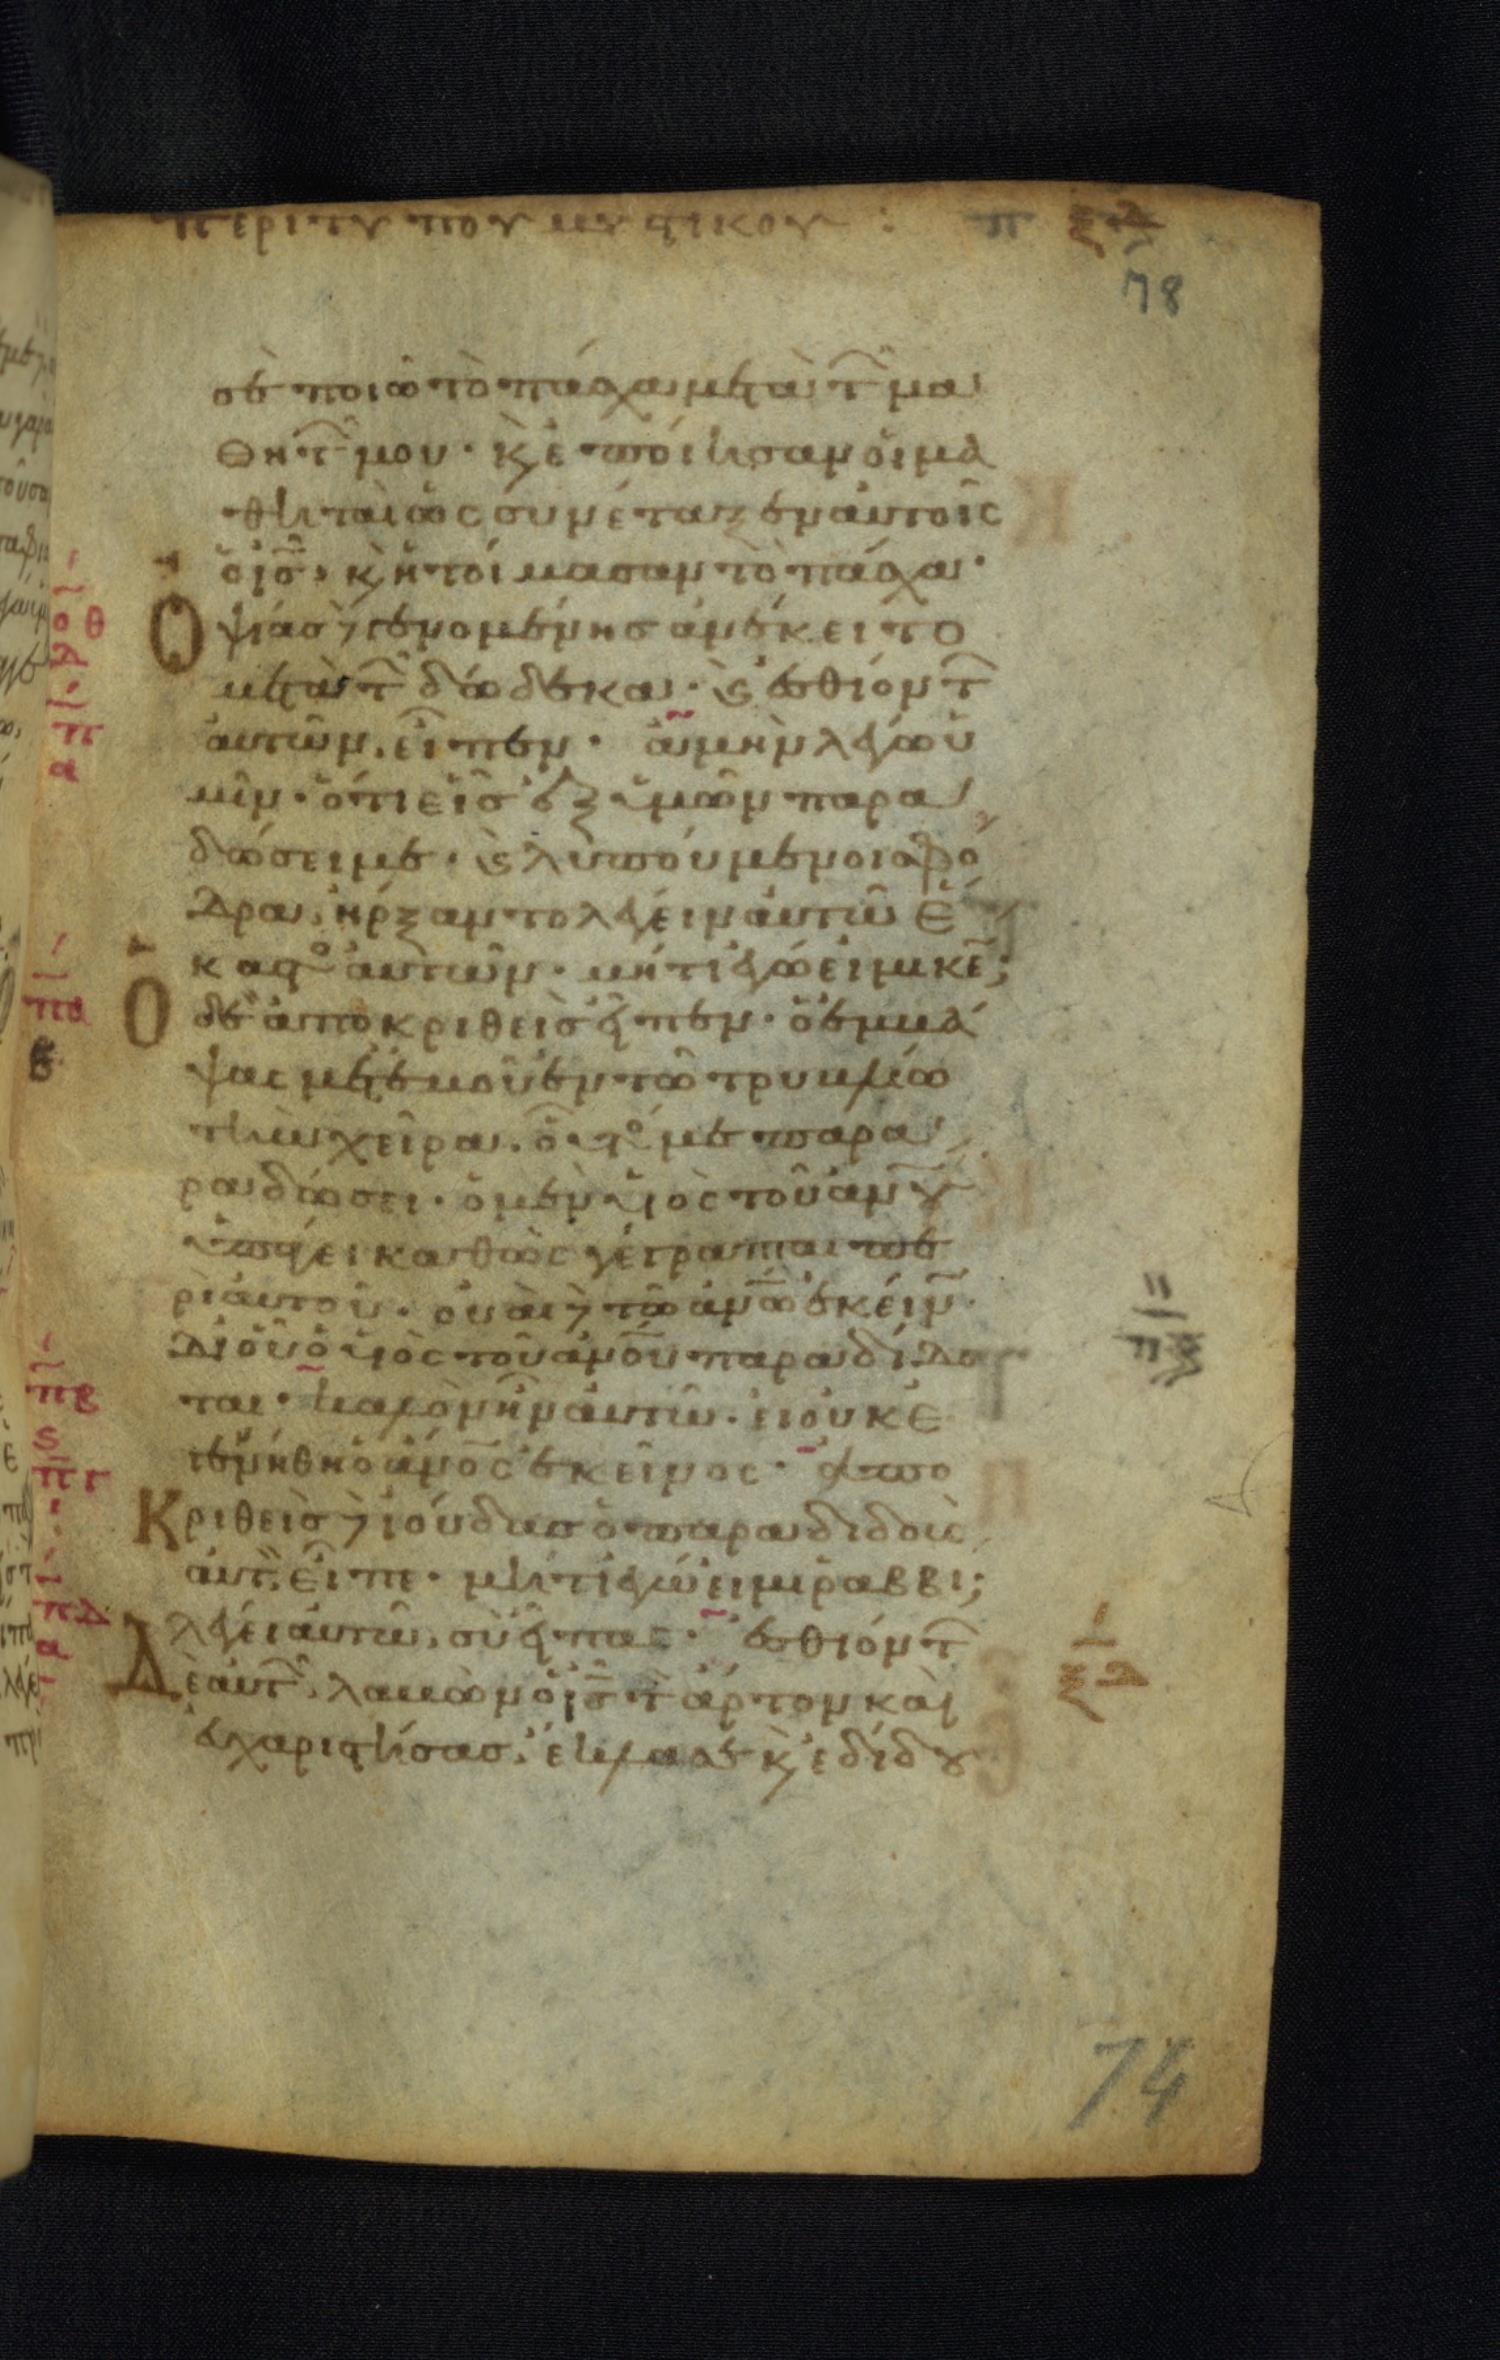 περι τυπου μυστικου : π ξδ
78
σὲ ποιῶ τὸ πάσχα μετὰ τ μα
θητ μου · κ ἐποίησαν οἱ μα
θηταὶ ὡς συνέταξεν αὐτοῖς
ὁ ις · κ ἡτοίμασαν τὸ πάσχα ·
Ὀψίας δ γενομένης ἀνέκειτο
μετὰ τ δώδεκα · κ ἐσθιόντ
αὐτῶν, εἶπεν · ἀμὴν λέγω ὑ
μῖν · ὅτι εἷς ἐξ ὑμῶν παρα
δώσει με · κ λυπούμενοι σφό
δρα, ἤρξαντο λέγειν αὐτῶ ἕ
καστο αὐτῶν · μήτι ἐγώ εἰμι κε;
Ὁ δὲ ἀποκριθεὶς εἶπεν · ὁ ἐμβά
ψας μετ ἐμοῦ ἐν τῶ τρυβλίω
τὴν χεῖρα, οὗτο με παρα
ραδώσει · ὁ μὲν υἱὸς τοῦ ανου
ὑπάγει καθὼς γέγραπται πε
ρὶ αὐτοῦ · οὐαὶ δ τῶ ανω ἐκείν
δι οὗ ὁ υἱὸς τοῦ ανου παραδίδο
ται · καλὸν ἦν αὐτῶ · εἰ οὐκ ἐ
γεννήθη ὁ ανος ἐκεῖνος · ἀπο
Κριθεὶς δ ἰούδας ὁ παραδιδοὺς
αὐτ, εἶπε · μήτι ἐγώ εἰμι ῥαββι;
λέγει αὐτῶ, σὺ εἶπας · ἐσθιόντ
Δὲ αὐτ, λαβὼν ὁ ις τ ἄρτον καὶ
εὐχαριστήσας, ἔκλασε κ ἐδίδου
οθ
δ
π
α
πα
β
πβ
ς
πγ
πδ
α
ξδ
74